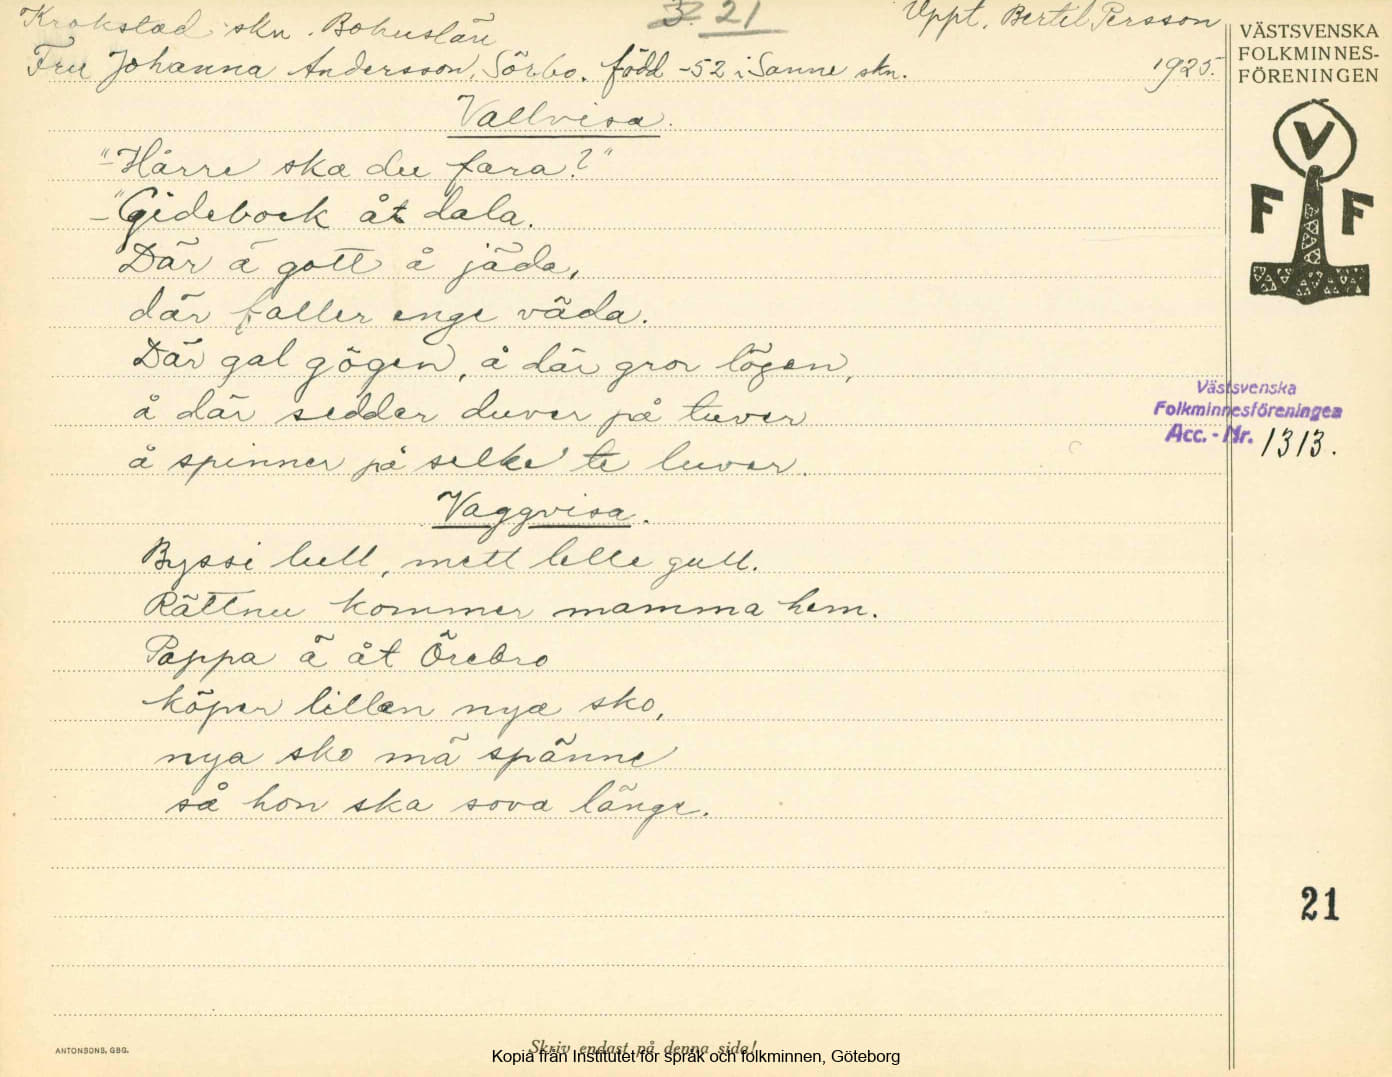 Krokstad skn. Bohuslän
3. 21
Uppt. Bertil Persson
Fru Johanna Andersson, Sörbo. född -52 i Sanne skn.
1925.
VÄSTSVENSKA
FOLKMINNES-
FÖRENINGEN
V
F F
Vallvisa.
"-Hårre ska du fara?"
-"Gidebock åt dala.
Där ä gott å jäda,
där faller enge väda.
Där gal gögen, å där gror lögen,
å där sedder duver på tuver
å spinner på selke' te luver.
Västsvenska
Folkminnesföreningen
Acc.-Nr. 1313.
Vaggvisa.
Byssi lull, mett lelle gull.
Rättnu kommer mamma hem.
Pappa ä åt Örebro
köper lillen nya sko,
nya sko mä spänne
så hon ska sova länge.
21
ANTONSONS, GBG.
Skriv endast på denna sida!
Kopia från Institutet för språk och folkminnen, Göteborg